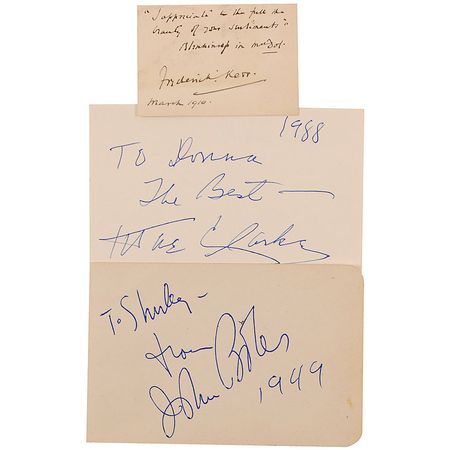 "I appreciate to the full the
beauty of your sentiments".
in
Frederick Kerr.
March 1910.
1988
To Donna
The Best —
Mae Clarke
To Shirley –
from
John Boles
1949